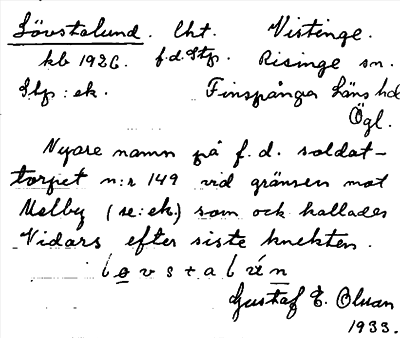 Lövstalund. Lht. Vistinge.
kb 1926. f.d. Stp. Risinge sn.
Stp: ek. Finspånga Läns hd
Ögl.
Nyare namn på f. d. soldat-
torpet n:r 149 vid gränsen mot
Melby (se: ek.) som ock kallades
Vidars efter siste knekten.
Gustaf E. Olsson
1933.